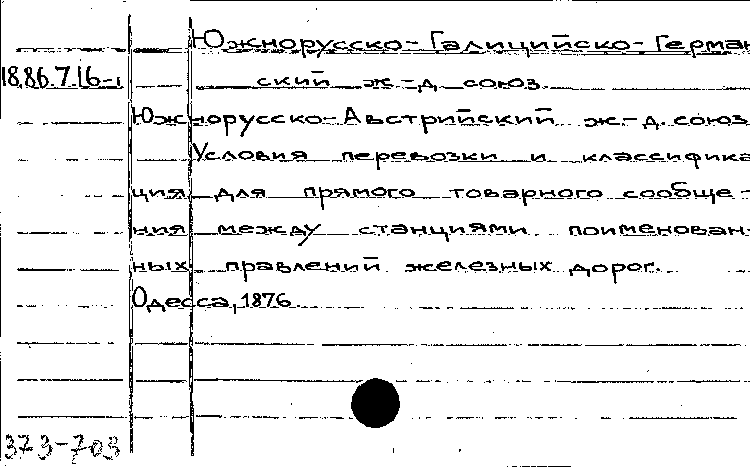 Южнорусско-Галицийско-Герман
18.86.7.16-1 ский ж-д союз.
Южнорусско-Австрийский ж-д. союз.
Условия перевозки и классифика
ция для прямого товарного сообще-
ния между станциями поименован-
ных правлений железных дорог.
Одесса, 1876.
373-703